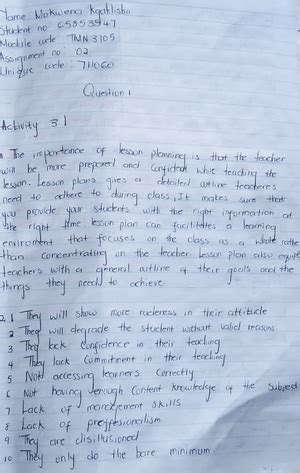 Name Mokwena Kgahlisho
Student no 65853847
Module code TMN 3705
Assignment no: 02
Unique code: 711060
Question 1
Activity 3.1
1 The importance of lesson planning is that the teacher
will be more prepared and confident while teaching the
lesson. Lesson plans gives a detailed outline teacheres
need to adhere to during class, It makes sure that
you provide your students with the right information at
the right time lesson plan can facilitates a learning
enviroment that focuses on the class as a whole rathe
than concentrating on the teacher lesson plan also equip
teachers with a general outline of their goals and the
things they need to achieve.
2.1 They will show more rudeness in their attitude
2 They will degrade the student without valid reasons
3 They lack confidence in their teaching
4 They lack commitment in their teaching
5 Not accessing learners correctly
6 Not having enough content knowledge of the subject
7 Lack of management skills
8 Lack of proffesionalism
9 They are disillusioned
10 They only do the bare minimum.